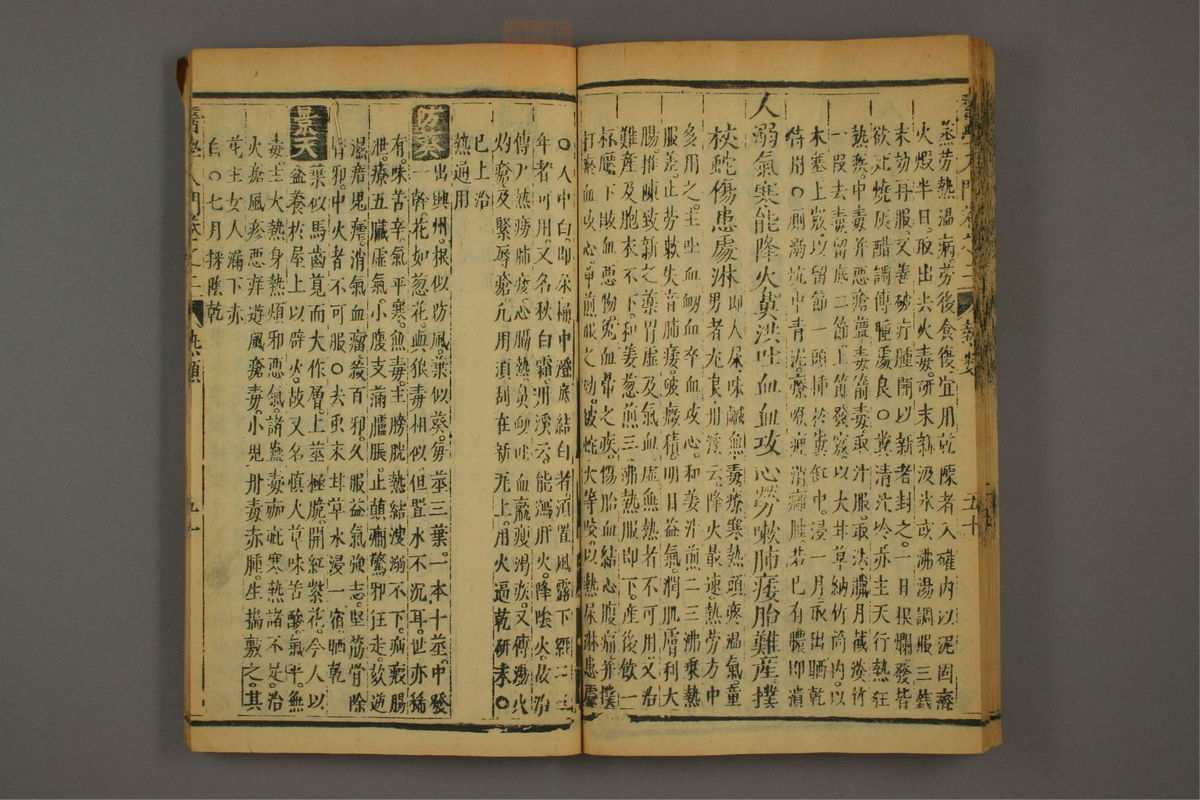 蒸劳熱溫病劳後食復宜用乾燥者入罐内以泥固濟
火煅半日取出去火毒研末新汲水或沸湯調服三錢
末効再服又善破疔腫開以新者封之一日根爛發背
欲死燒灰醋調傅腫處良○糞清汁冷亦主天行熱狂
熱疾中毒并惡瘡蕈毒箭毒取汁服取法臘月截淡竹
一段去青留底二節上節發竅以大甘草納竹筒内以
木塞上竅以留節一頭揷於糞缸中浸一月取出晒乾
待用○厠溺坑中青泥療喉痺消癰腫若已有膿即潰
人溺氣寒能降火糞洪吐血血攻心劳嗽肺痿胎難產撲
损蛇傷患處淋即人尿味鹹無毒療寒熱頭疼溫氣童
男者尤良丹溪云降火最速熱劳方中
多用之主吐血衂血卒血攻心和姜汁煎二三沸乘熱
服差止劳軟失音肺痿破癥積明目益氣潤肌膚利大
腸推陳致新之藥胃虚及氣血虚無熱者不可用又治
難產及胞衣不下和姜葱煎三沸熱服即下產後飲一
杯壓下敗血惡物免血暈之疾傷胎血結心腹痛并撲
打瘀血攻心單煎服之効被蛇犬等咬以熱尿淋患處
醫學入門卷之二 熱類 五十
○人中白即尿桶中澄底結白者須置風露下經二三
年者可用又名秋白霜丹溪云能瀉肝火降陰火故治
傳尸熱痨肺痿心膈熱鼻衂吐血羸瘦渴疾又傅湯火
灼瘡及緊唇瘡凡用須刮在新瓦上用火逼乾研末○
已上治
熱通用
佐葵出興州根似防風葉似葵每莖三葉一本十莖中發
一幹花如葱花與狼毒相似但置水不沉耳世亦稀
有味苦辛氣平寒無毒主膀胱熱結溲溺不下病瘕腸
泄療五臟虚氣小腹支滿臚脹止顛癇驚邪狂走欬逆
溫瘧鬼瘧消氣血瘤殺百邪久服益氣強志堅筋骨除
胃卵中火者不可服○去皮末甘草水浸一宿晒乾
景天葉似馬齒莧而大作層上莖極脆開紅紫花今人以
盆養於屋上以辟火故又名慎火草味苦酸氣平無
毒主大熱身熱煩邪惡氣諸蠱毒痂疕寒熱諸不足治
火瘡風疹惡痒遊風瘡毒小兒丹毒赤腫生搗敷之其
花主女人漏下赤
白○七月採陰乾
醫學入門卷之二 熱類 五十